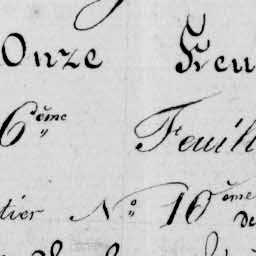 Onze Feu
6ème Feuill
tier No 10ème
de